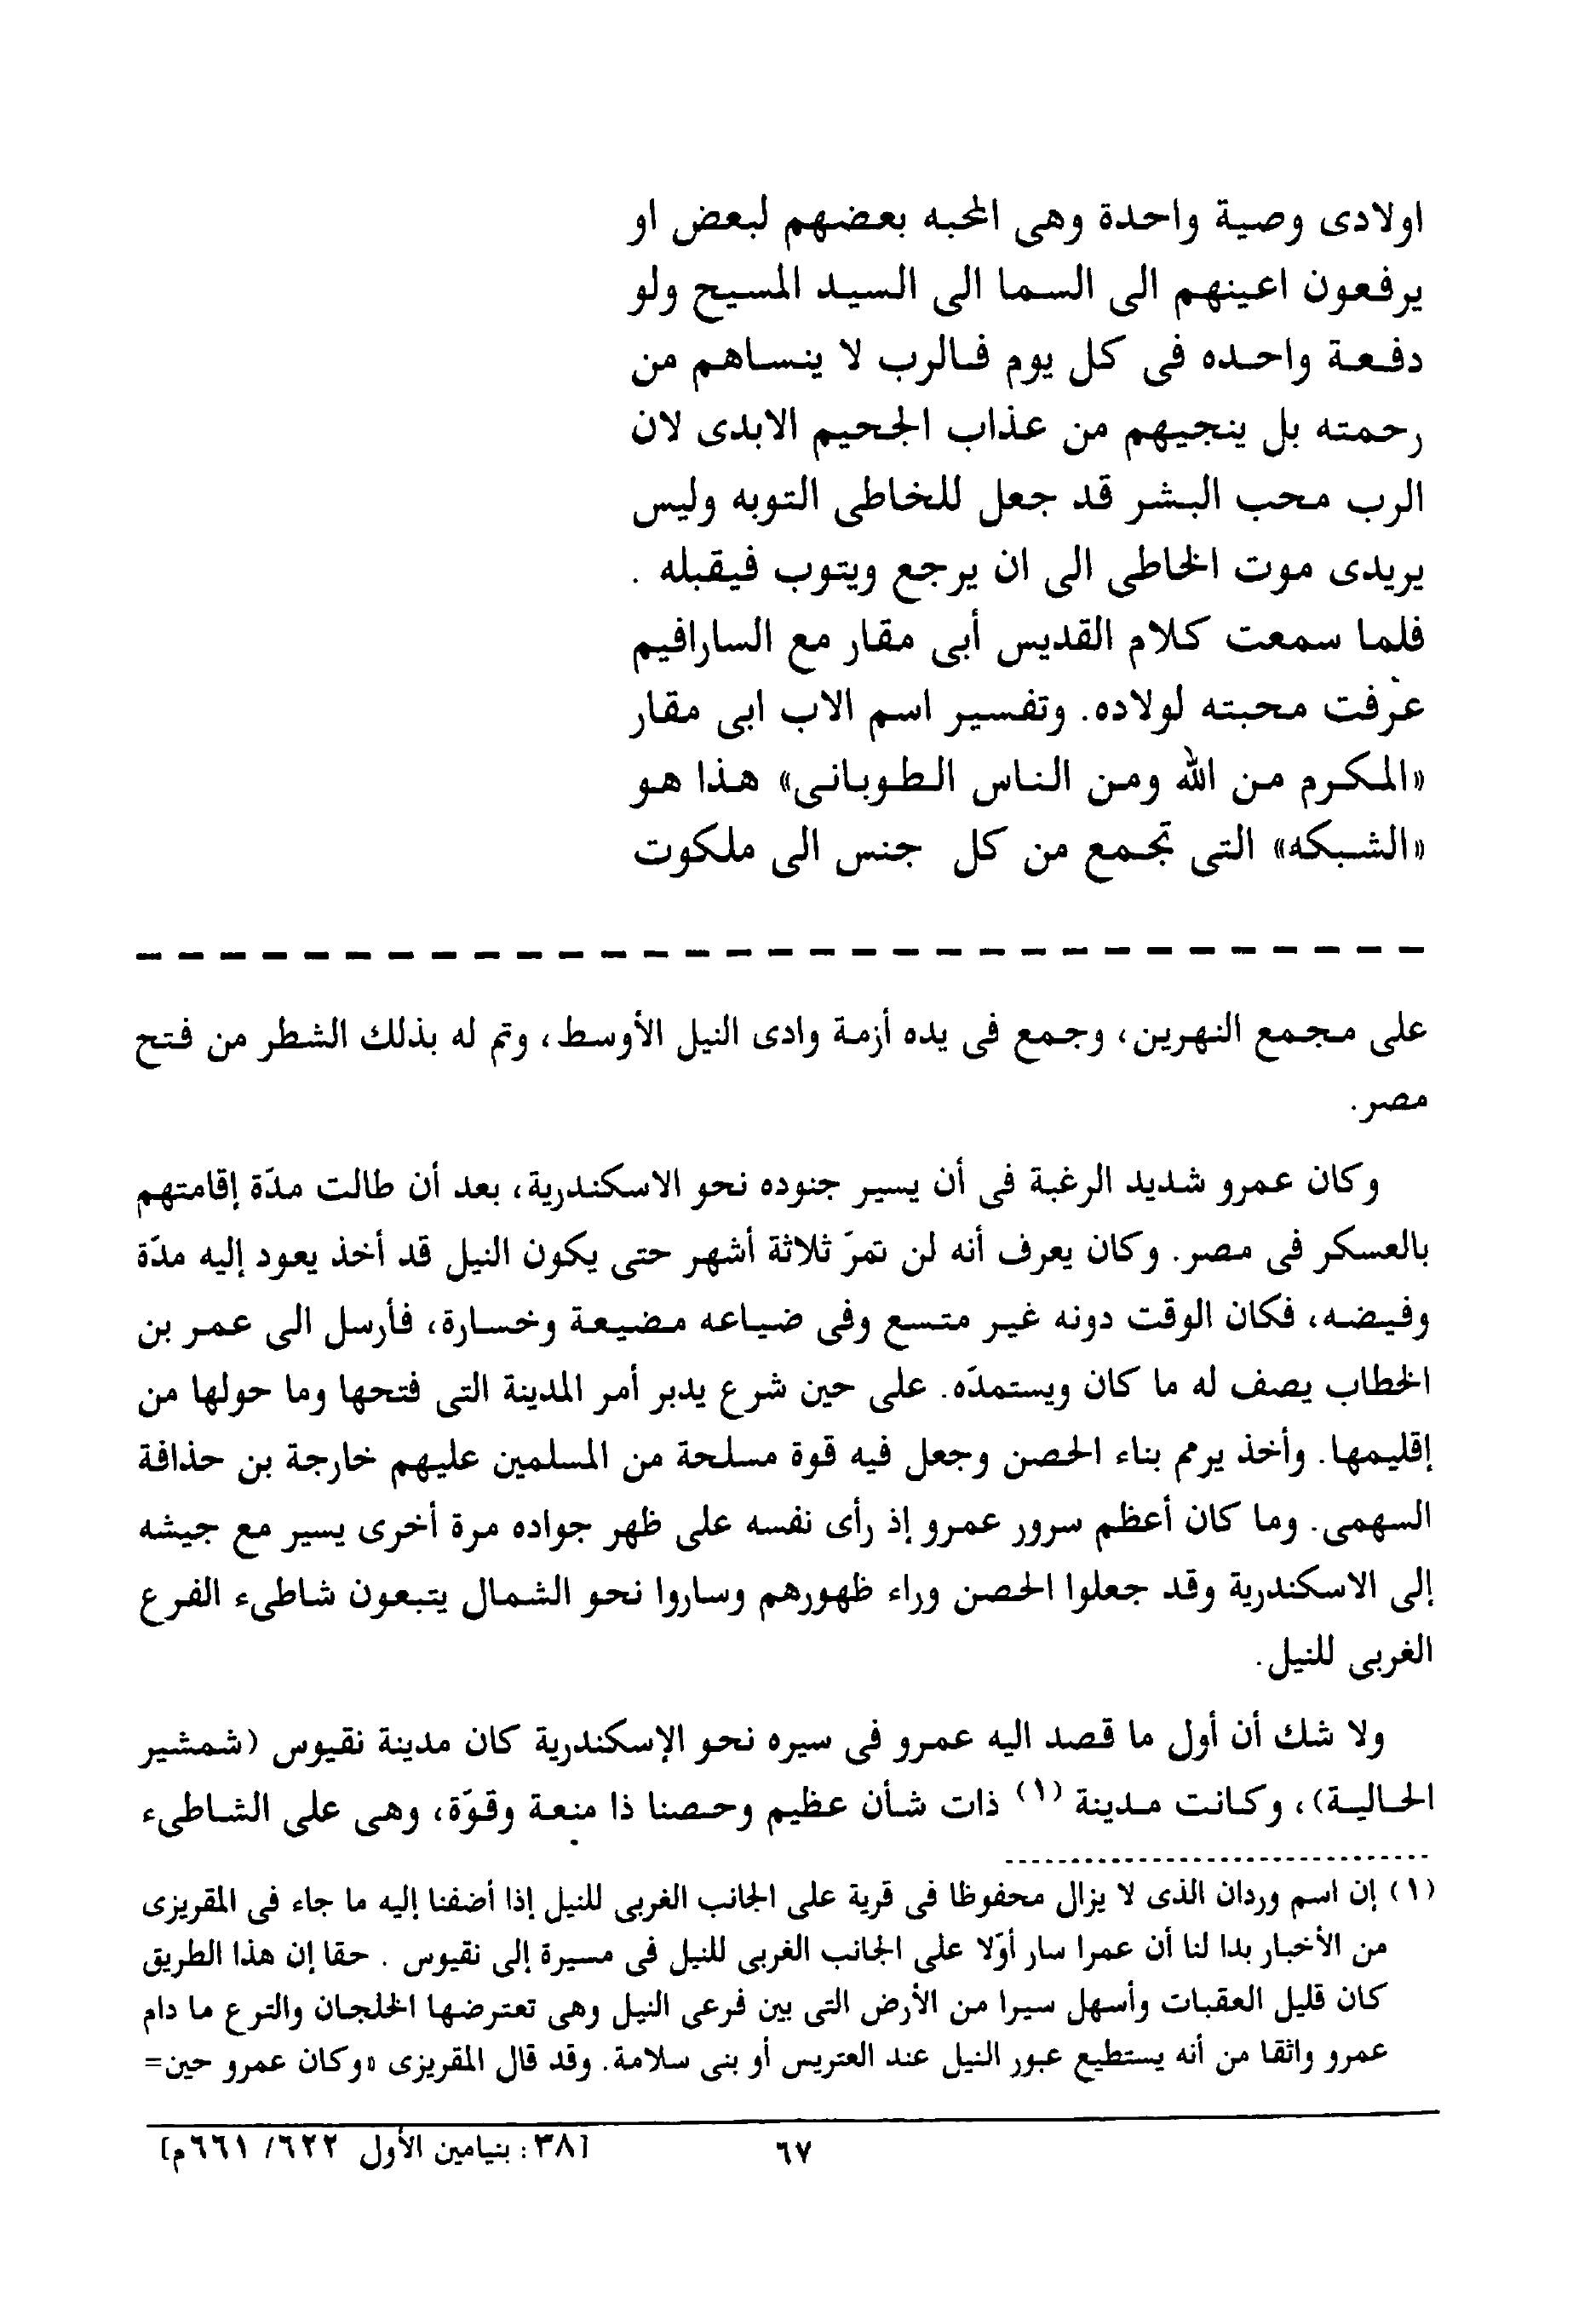 اولادى وصية واحدة وهى المحبه بعضهم لبعض او
يرفعون اعينهم الى السما الى السيد المسيح ولو
دفعة واحده فى كل يوم فالرب لا ينساهم من
رحمته بل ينجيهم من عذاب الجحيم الابدى لان
الرب محب البشر قد جعل للخاطى التوبه وليس
يريدى موت الخاطى الى ان يرجع ويتوب فيقبله .
فلما سمعت كلام القديس أبى مقار مع السارافيم
عرفت محبته لولاده. وتفسير اسم الاب ابى مقار
«المكرم من الله ومن الناس الطوبانى» هذا هو
«الشبكه» التى تجمع من كل جنس الى ملكوت
على مجمع النهرين، وجمع فى يده أزمة وادى النيل الأوسط، وتم له بذلك الشطر من فتح
مصر.
وكان عمرو شديد الرغبة فى أن يسير جنوده نحو الاسكندرية، بعد أن طالت مدّة إقامتهم
بالعسكر فى مصر. وكان يعرف أنه لن تمرّ ثلاثة أشهر حتى يكون النيل قد أخذ يعود إليه مدّة
وفيضه، فكان الوقت دونه غير متسع وفى ضياعه مضيعة وخسارة، فأرسل الى عمر بن
الخطاب يصف له ما كان ويستمدّه. على حين شرع يدبر أمر المدينة التى فتحها وما حولها من
إقليمها. وأخذ يرمم بناء الحصن وجعل فيه قوة مسلحة من المسلمين عليهم خارجة بن حذافة
السهمى. وما كان أعظم سرور عمرو إذ رأى نفسه على ظهر جواده مرة أخرى يسير مع جيشه
إلى الاسكندرية وقد جعلوا الحصن وراء ظهورهم وساروا نحو الشمال يتبعون شاطىء الفرع
الغربى للنيل.
ولا شك أن أول ما قصد اليه عمرو فى سيره نحو الإسكندرية كان مدينة نقيوس (شمشير
الحالية)، وكانت مدينة (١) ذات شأن عظيم وحصنا ذا منعة وقوّة، وهى على الشاطىء
(١) إن اسم وردان الذى لا يزال محفوظا فى قرية على الجانب الغربى للنيل إذا أضفنا إليه ما جاء فى المقريزى
من الأخبار بدا لنا أن عمرا سار أوّلا على الجانب الغربى للنيل فى مسيرة إلى نقيوس . حقا إن هذا الطريق
كان قليل العقبات وأسهل سيرا من الأرض التى بين فرعى النيل وهى تعترضها الخلجان والترع ما دام
عمرو واثقا من أنه يستطيع عبور النيل عند العتريس أو بنى سلامة. وقد قال المقريزى «وكان عمرو حين=
٦٧
[٣٨: بنيامين الأول ٦٢٢/ ٦٦١م]